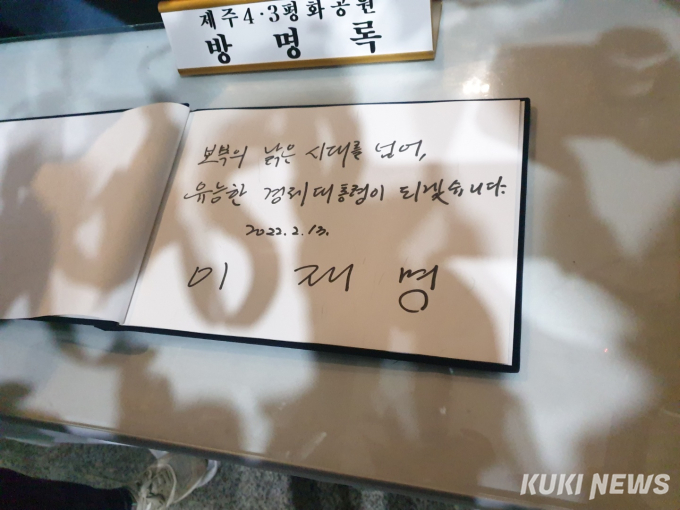 제주4·3평화공원
방명록
보복의 낡은 시대를 넘어,
유능한 경제대통령이 되겠습니다.
2022. 2. 13.
이재명
KUKI NEWS